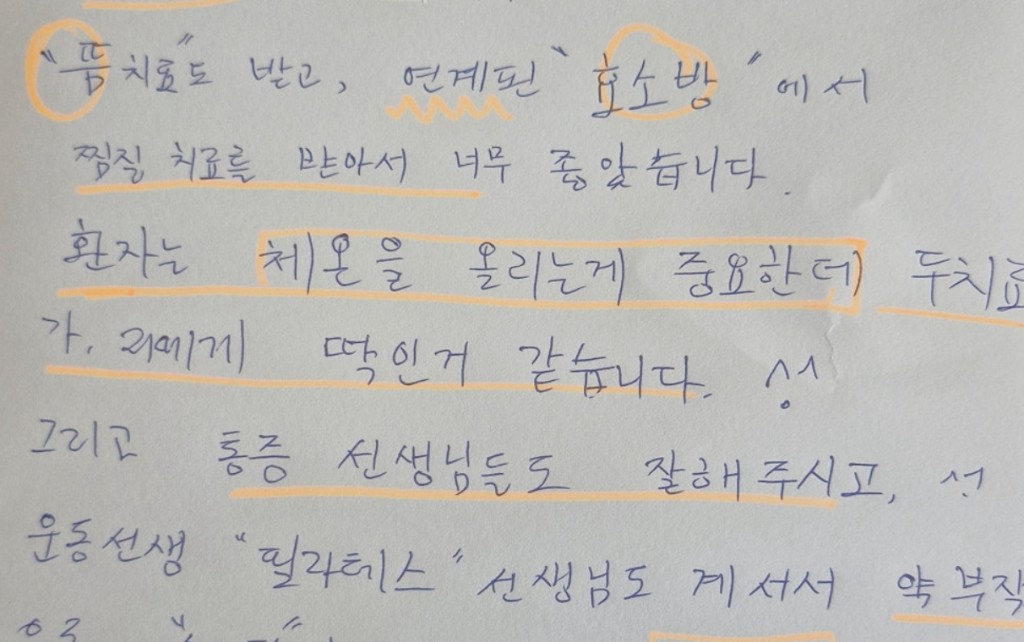 "뜸치료"도 받고, 연계된 "효소방"에서
찜질 치료를 받아서 너무 좋았습니다.
환자는 체온을 올리는게 중요한데 두치료
가. 저에게 딱인거 같습니다.
그리고 통증 선생님들도 잘해주시고,
운동선생 "필라테스" 선생님도 계셔서 약 부작